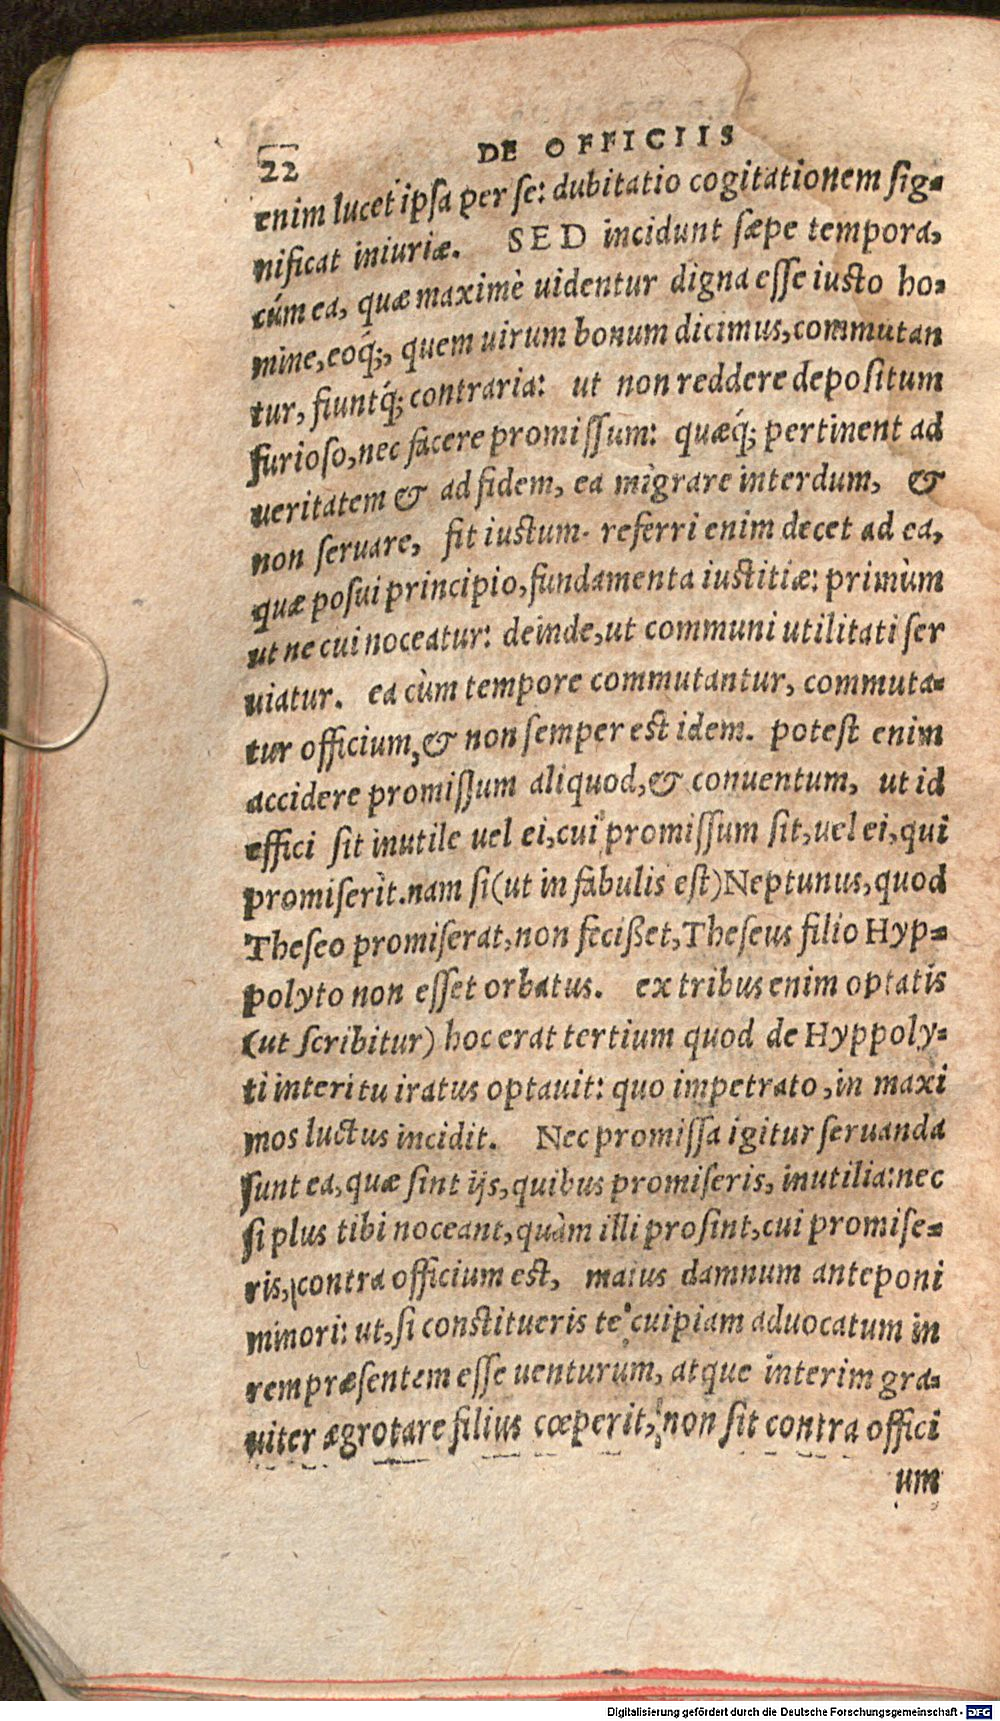 22 DE OFFICIIS
enim lucet ipsa per se: dubitatio cogitationem sig-
nificat iniuriæ. SED incidunt sæpe tempora,
cúm ea, quæ maximè uidentur digna esse iusto ho-
mine, eoq́;, quem uirum bonum dicimus, commutan
tur, fiuntq́; contraria: ut non reddere depositum
furioso, nec facere promissum: quæq́; pertinent ad
ueritatem & ad fidem, ea migrare interdum, &
non seruare, fit iustum. referri enim decet ad ea,
quæ posui principio, fundamenta iustitiæ: primùm
ut ne cui noceatur: deinde, ut communi utilitati ser
uiatur. ea cùm tempore commutantur, commuta-
tur officium, & non semper est idem. potest enim
accidere promissum aliquod, & conuentum, ut id
effici sit inutile uel ei, cui promissum sit, uel ei, qui
promiserit. nam si (ut in fabulis est) Neptunus, quod
Theseo promiserat, non fecißet, Theseus filio Hyp-
polyto non esset orbatus. ex tribus enim optatis
(ut scribitur) hoc erat tertium quod de Hyppoly-
ti interitu iratus optauit: quo impetrato, in maxi
mos luctus incidit. Nec promissa igitur seruanda
sunt ea, quæ sint ijs, quibus promiseris, inutilia: nec
si plus tibi noceant, quàm illi prosint, cui promise-
ris, contra officium est, maius damnum anteponi
minori: ut, si constitueris te cuipiam aduocatum in
rem præsentem esse uenturum, atque interim gra-
uiter ægrotare filius cœperit, non sit contra offici
um
Digitalisierung gefördert durch die Deutsche Forschungsgemeinschaft - DFG